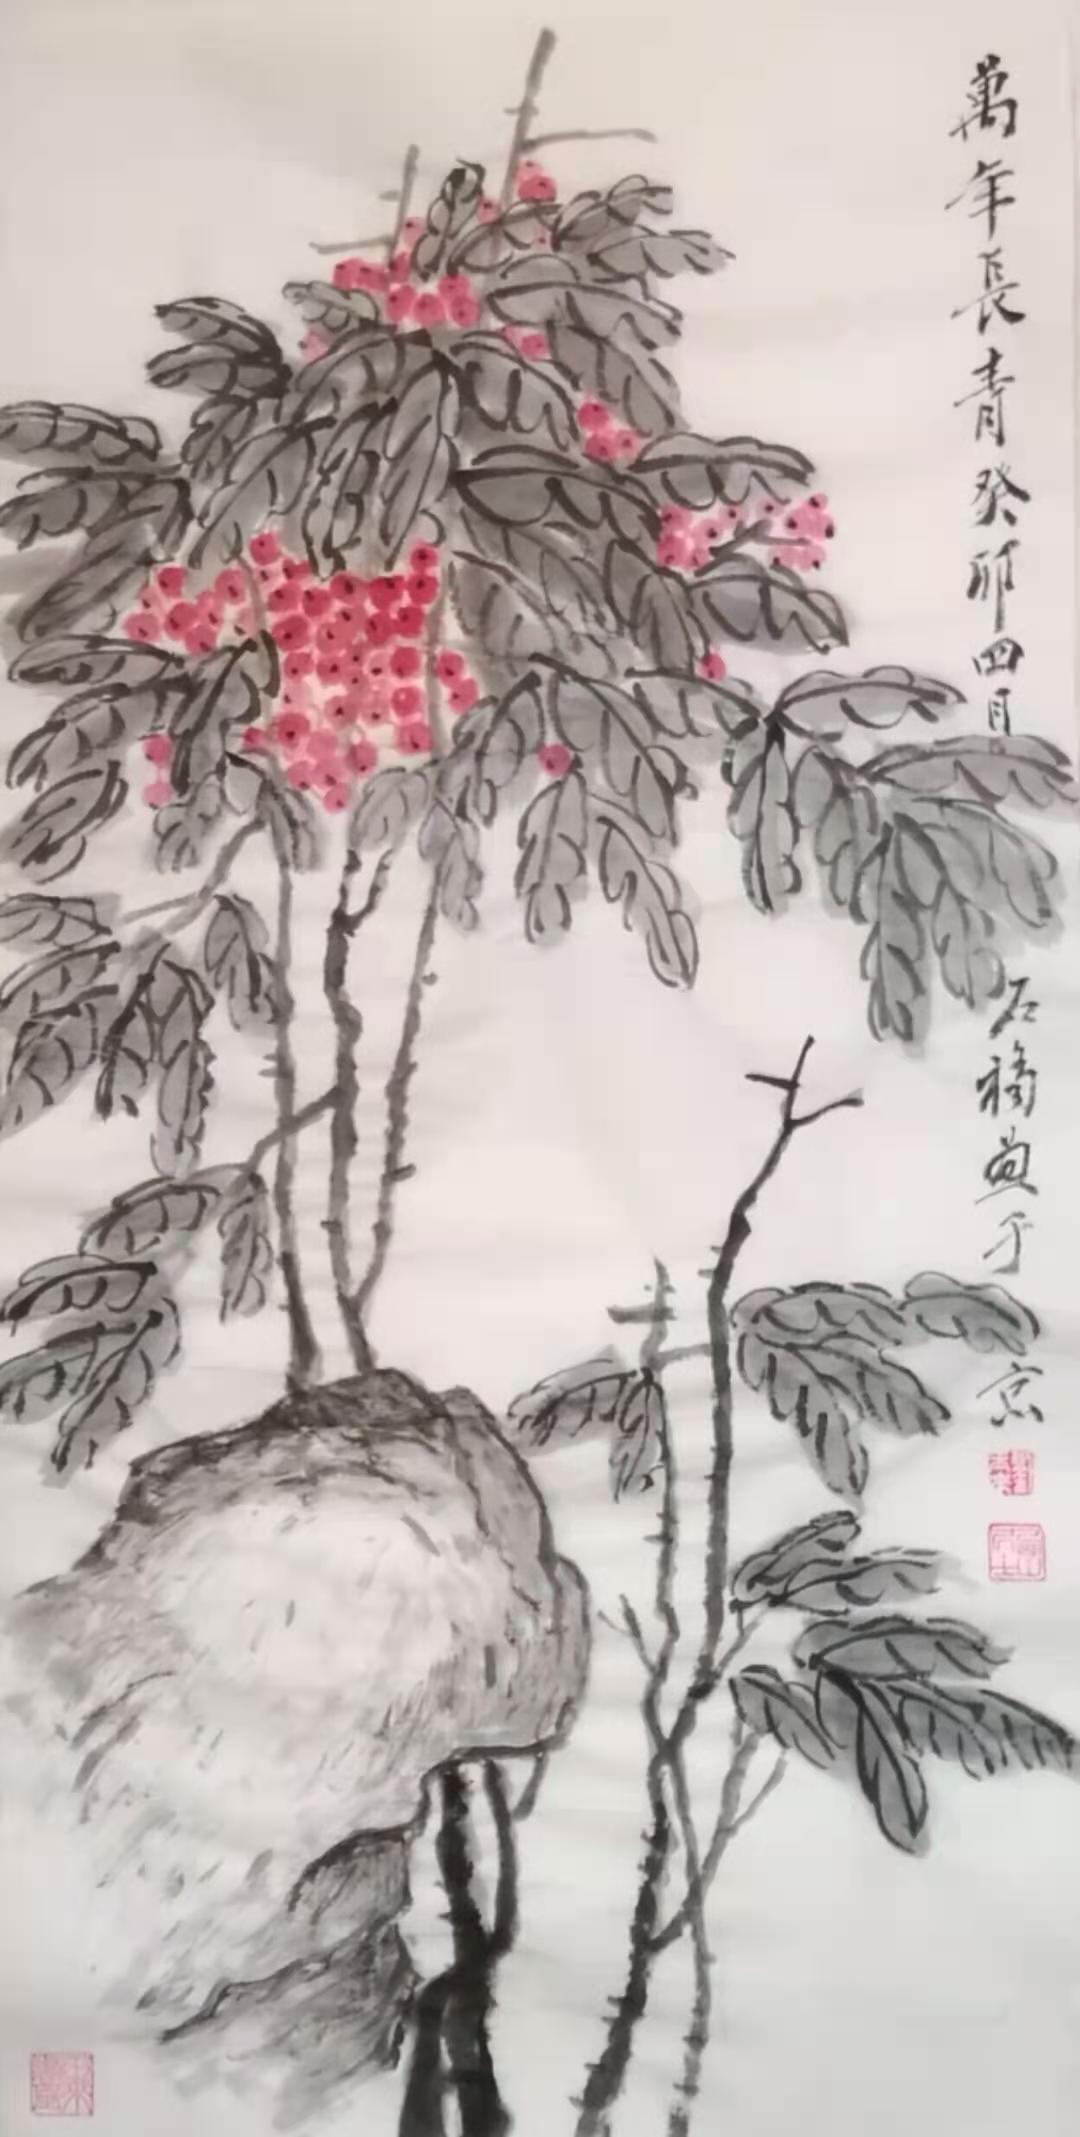 萬年長青癸卯四月
石福畫于
京